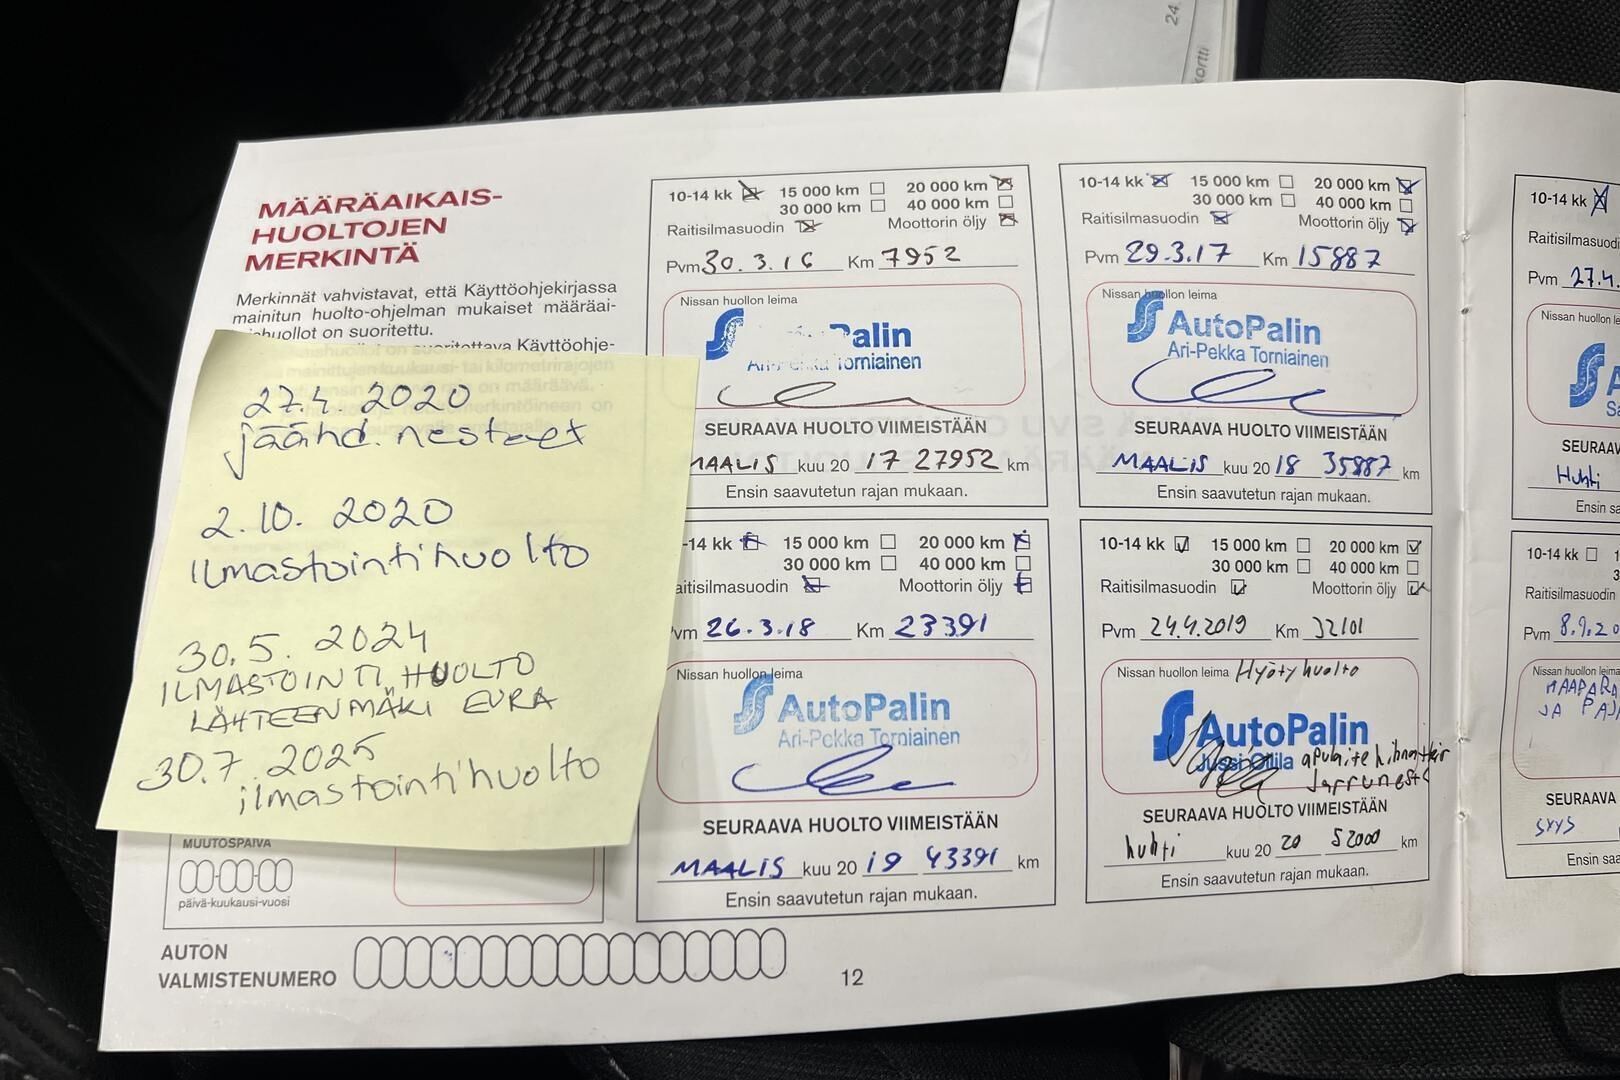 MÄÄRÄAIKAIS-
HUOLTOJEN
MERKINTÄ
Merkinnät vahvistavat, että Käyttöohjekirjassa
mainitun huolto-ohjelman mukaiset määräai-
huollot on suoritettu.
suoritettava Käyttöohje-
27.4 2020
jäähd. nesteet
2.10. 2020
ILmastointihuolto
30.5. 2024
ILMASTOINTI HUOLTO
LÄHTEENMÄKI EURA
30.7. 2025
ilmastointihuolto
MUUTOSPÄIVÄ
päivä-kuukausi-vuosi
AUTON
VALMISTENUMERO
12
10-14 kk 15 000 km 20 000 km
30 000 km 40 000 km
Raitisilmasuodin Moottorin öljy
Pvm 30.3.16 Km 7952
Nissan huollon leima
Palin
Torniainen
SEURAAVA HUOLTO VIIMEISTÄÄN
MAALIS kuu 20 17 27952 km
Ensin saavutetun rajan mukaan.
10-14 kk 15 000 km 20 000 km
30 000 km 40 000 km
Raitisilmasuodin Moottorin öljy
Pvm 29.3.17 Km 15887
Nissan huollon leima
AutoPalin
Ari-Pekka Torniainen
SEURAAVA HUOLTO VIIMEISTÄÄN
MAALIS kuu 20 18 35887 km
Ensin saavutetun rajan mukaan.
-14 kk 15 000 km 20 000 km
30 000 km 40 000 km
aitisilmasuodin Moottorin öljy
vm 26.3.18 Km 23391
Nissan huollon leima
AutoPalin
Ari-Pekka Torniainen
SEURAAVA HUOLTO VIIMEISTÄÄN
MAALIS kuu 20 19 43391 km
Ensin saavutetun rajan mukaan.
10-14 kk 15 000 km 20 000 km
30 000 km 40 000 km
Raitisilmasuodin Moottorin öljy
Pvm 24.4.2019 Km 32101
Nissan huollon leima Hyötyhuolto
AutoPalin
Jussi Ollila
Jarrunest
SEURAAVA HUOLTO VIIMEISTÄÄN
huhti kuu 20 20 52000 km
Ensin saavutetun rajan mukaan.
10-14 kk
Raitisilmasuodi
Pvm 27.4.
Nissan huollon le
SEURAAV
Huhti
Ensin sa
10-14 kk
Raitisilmasuodin
Pvm 8.9.20
Nissan huollon leima
JA PAJ
SEURAAVA
SYYS
Ensin saa